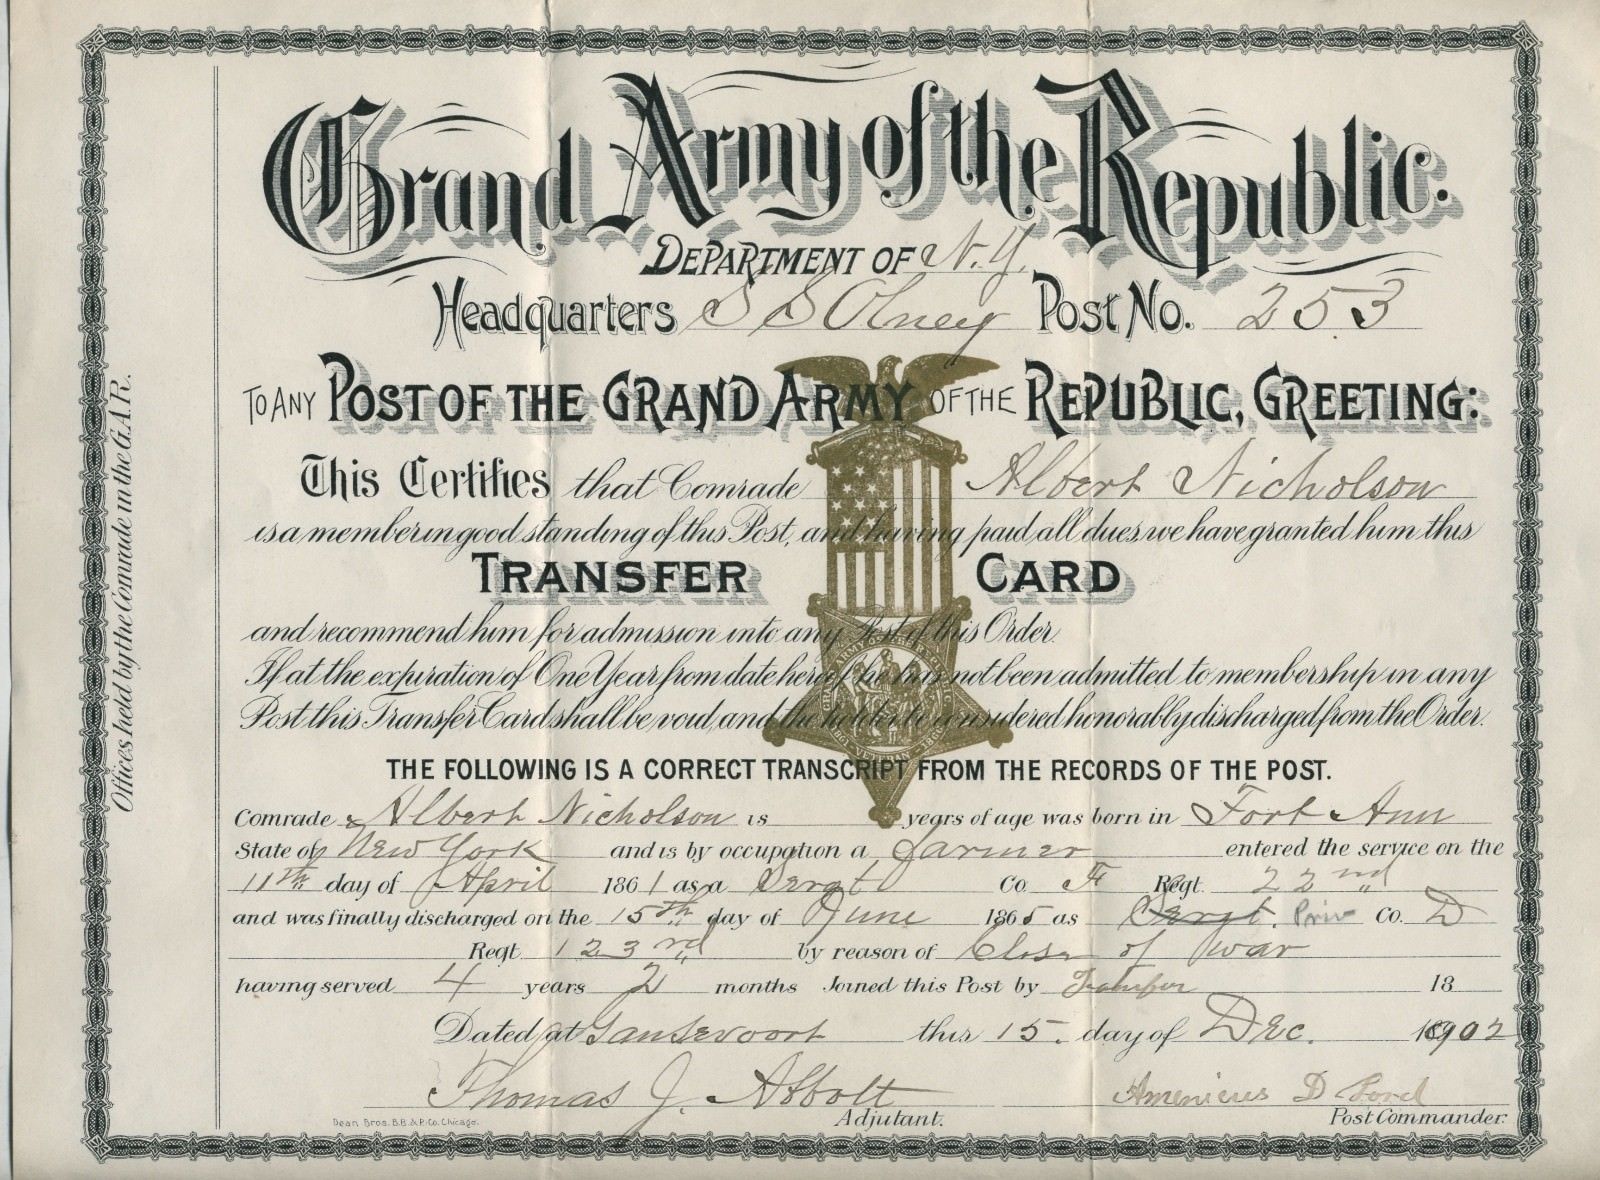 Grand Army of the Republic.
DEPARTMENT OF N.Y.
Headquarters S S Olney Post No. 253
TO ANY POST OF THE GRAND ARMY OF THE REPUBLIC, GREETING:
This Certifies that Comrade Albert Nicholson
is a member in good standing of this Post, and having paid all dues, we have granted him this
TRANSFER CARD
and recommend him for admission into any Post of this Order.
If at the expiration of One Year from date hereof he has not been admitted to membership in any
Post this Transfer Card shall be void, and the holder be considered honorably discharged from the Order.
THE FOLLOWING IS A CORRECT TRANSCRIPT FROM THE RECORDS OF THE POST.
Comrade Albert Nicholson is years of age was born in Fort Ann
State of New York and is by occupation a Farmer entered the service on the
11th day of April 1861 as a Sergt Co. F Regt. 22nd
and was finally discharged on the 15th day of June 1865 as Sergt. Priv Co. D
Regt. 123rd by reason of Close of war
having served 4 years 2 months Joined this Post by Transfer 18
Dated at Gansevoort this 15. day of Dec. 1902
Thomas J. Abbott Americus D Ford
Adjutant. Post Commander.
Dean Bros. B.B. & P. Co. Chicago.
Offices held by the Comrade in the G.A.R.
GRAND ARMY OF THE REPUBLIC
1861 - VETERAN - 1866